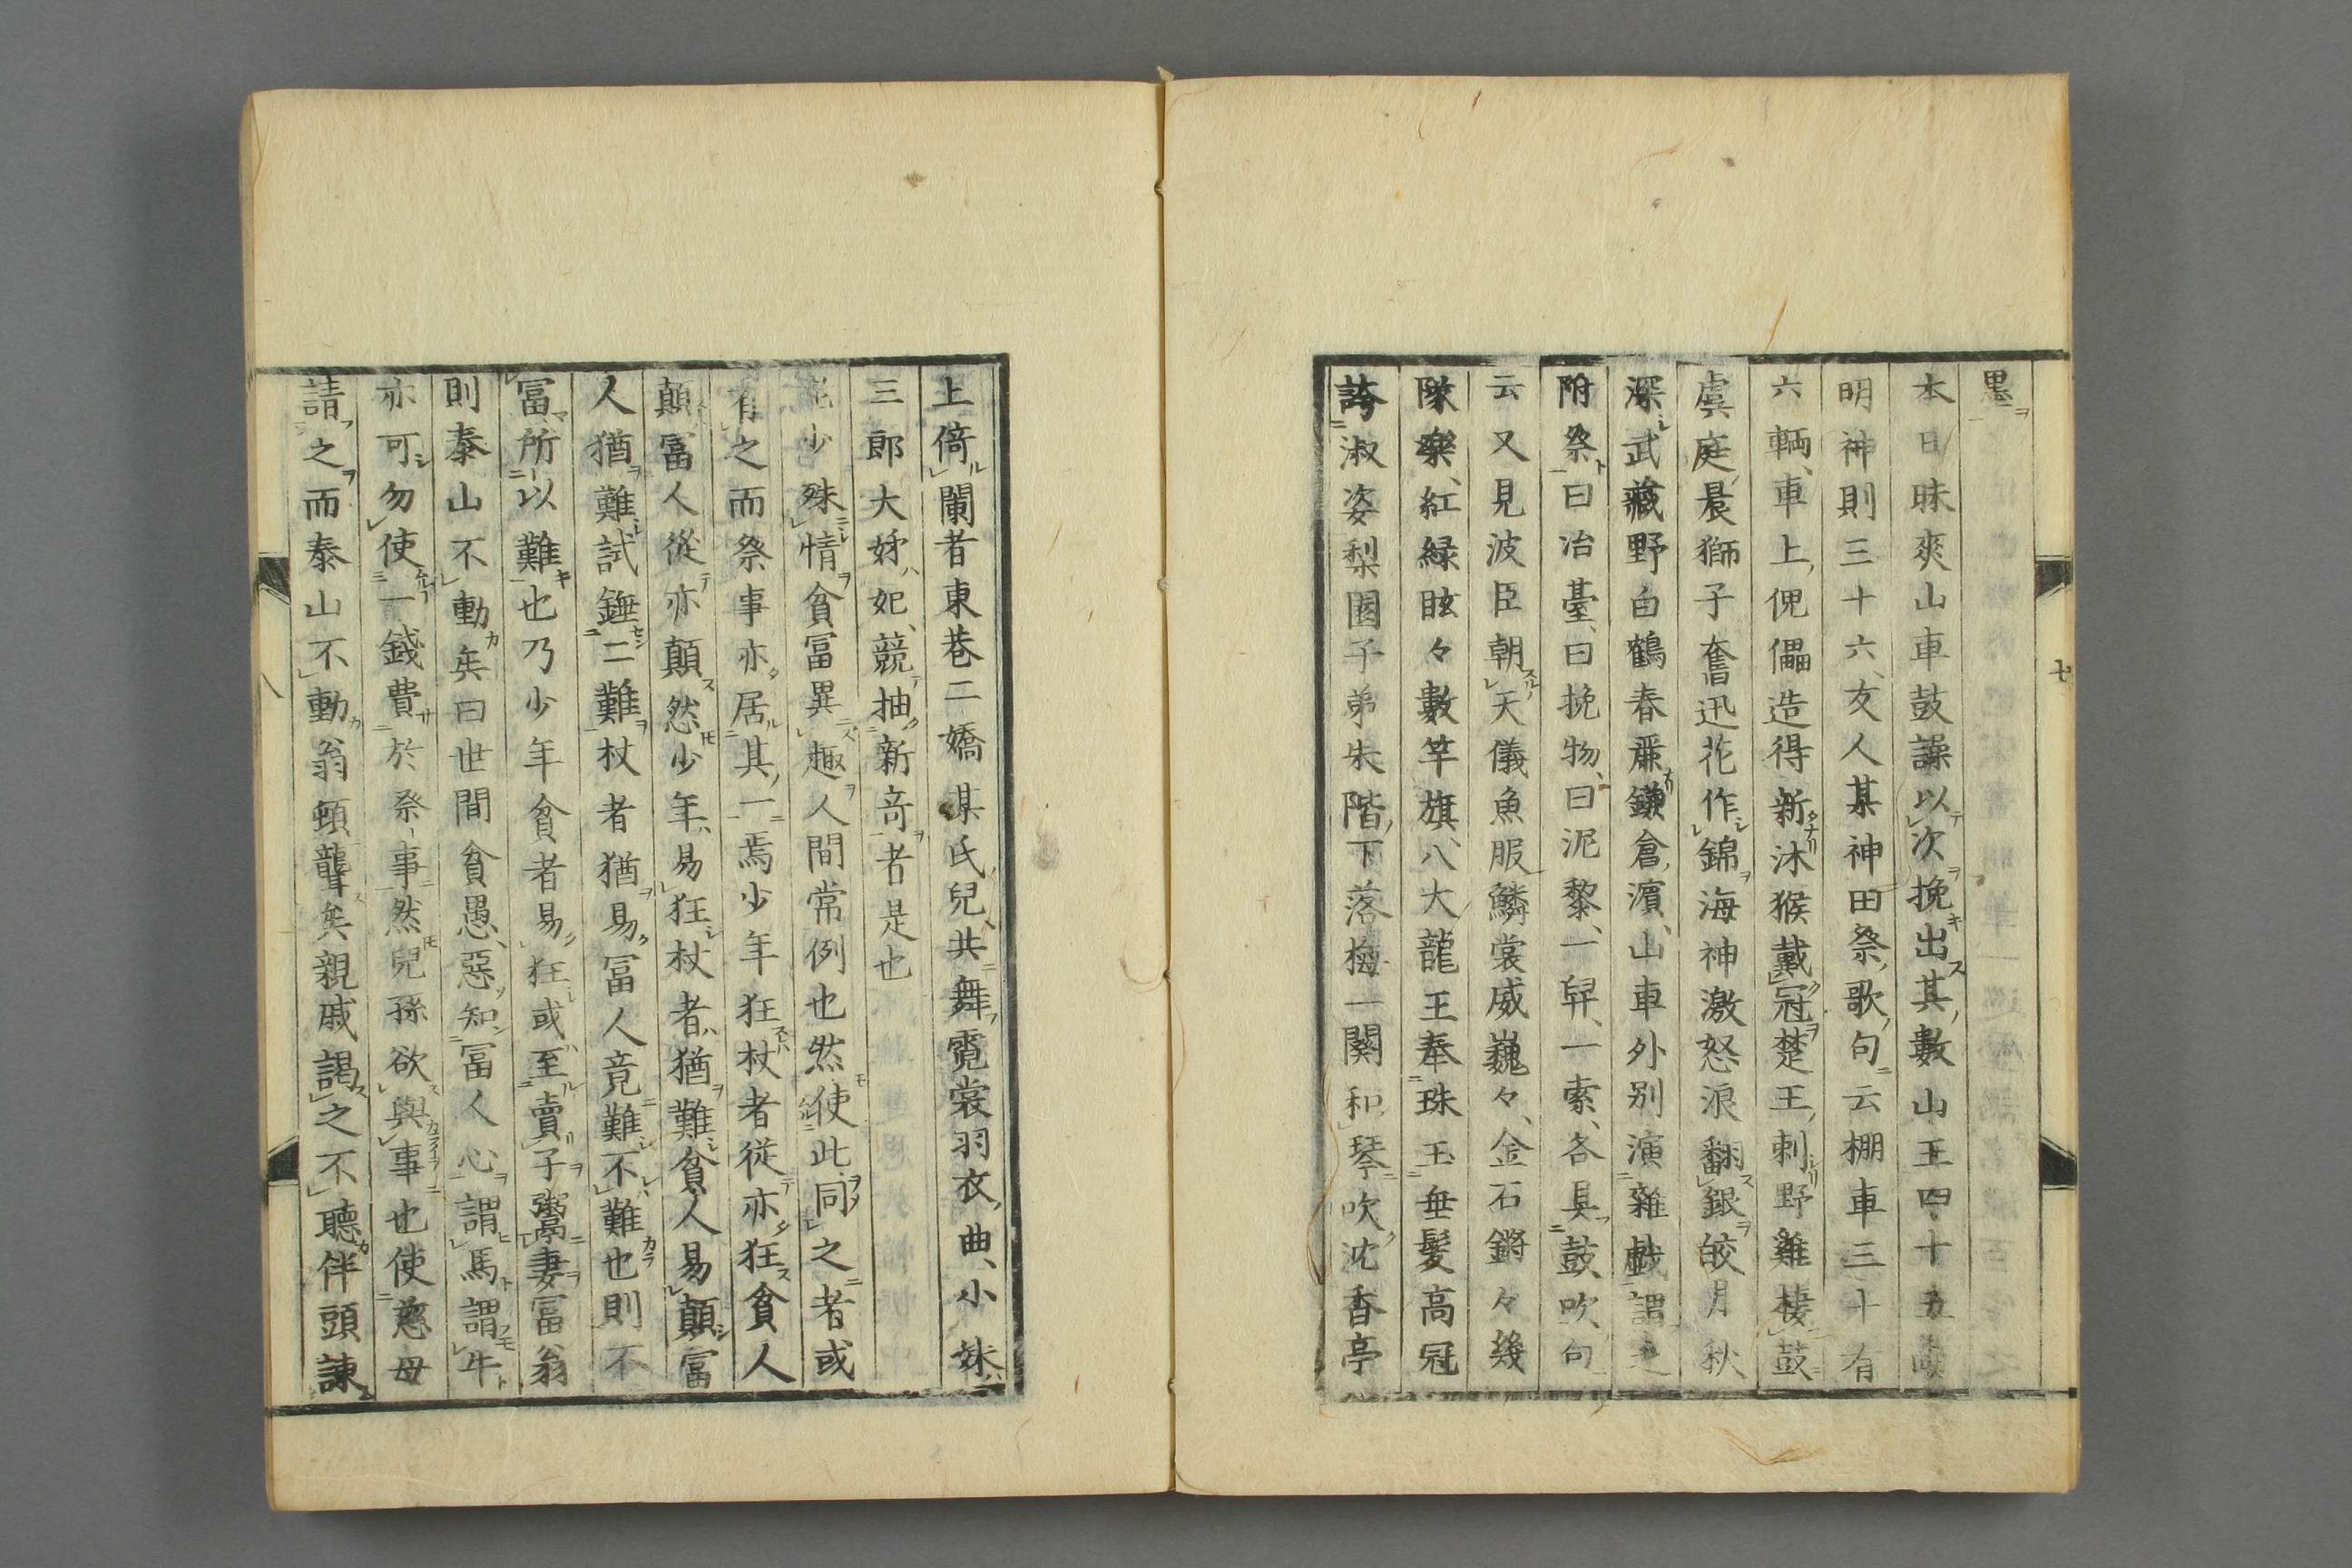 墨
本日昧爽山車鼓譟以次挽出其數山王四十五
明神則三十六、友人某神田祭歌句云棚車三十有
六輌、車上傀儡造得新沐猴戴冠楚王刺野雞棲鼓
虞庭晨獅子奮迅花作錦海神激怒浪翻銀皎月秋
深武藏野白鶴春肅鎌倉濵、山車外别演雜戯謂之
附祭曰冶臺、曰挽物、曰泥黎、一舁、一索、各具鼓、吹、句
云又見波臣朝天儀魚服鱗裳威巍々、金石鏘々幾
隊樂、紅緑眩々數竿旗、八大龍王奉珠玉垂髮高冠
誇淑姿梨園子弟朱階下落梅一闋和琴吹沈香亭
七
上倚闌者東巷二嬌某氏兒共舞霓裳羽衣曲、小妹
三郎大姊妃、競抽新奇者是也
老少殊情貧冨異趣人間常例也然使此同之者或
有之而祭事亦居其一焉少年狂杖者従亦狂貧人
顛冨人從亦顛然少年易狂杖者猶難貧人易顛冨
人猶難試鍾二難杖者猶易冨人竟難不難也則不
冨所以難也乃少年貧者易狂或至賣子鬻妻冨翁
則泰山不動矣曰世間貧愚、惡知冨人心謂馬謂牛
亦可勿使一錢費於祭事然兒孫欲與事也使慈母
請之而泰山不動翁頓聾矣親戚謁之不聽伴頭諫
八